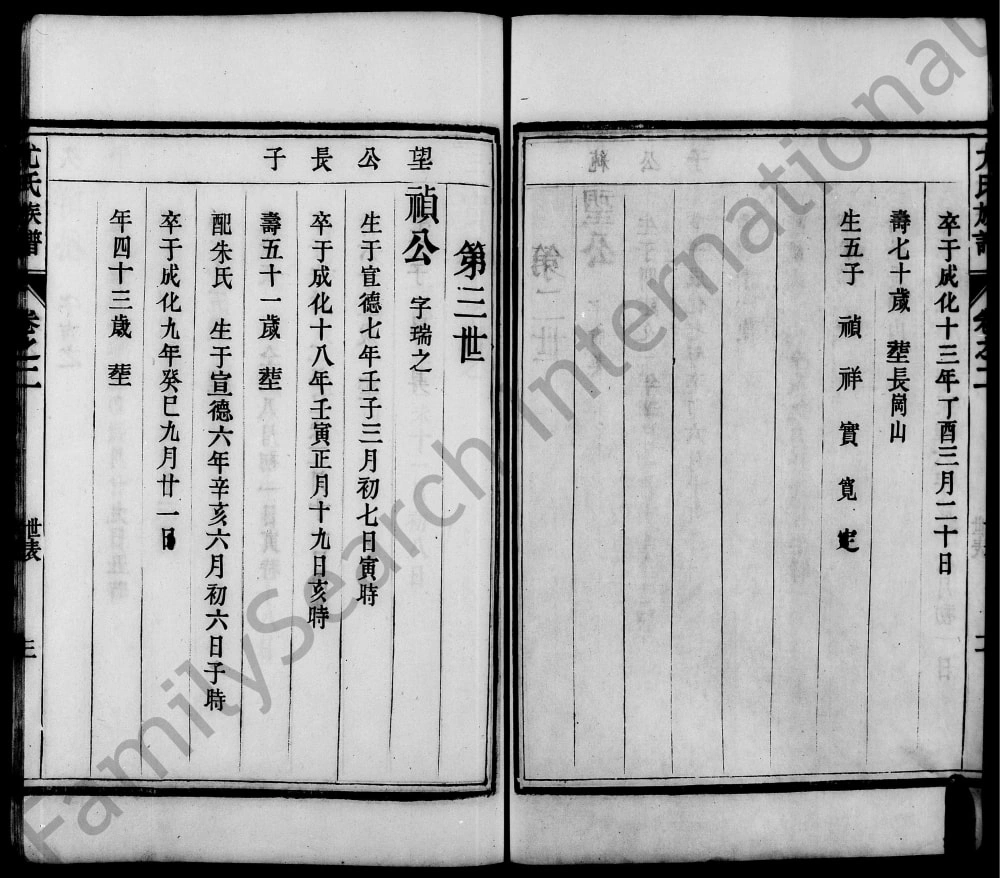 卒于成化十三年丁酉三月二十日
壽七十歲 塟長崗山
生五子 禎 祥 實 寬 定
第三世
望公長子
禎公 字瑞之
生于宣德七年壬子三月初七日寅時
卒于成化十八年壬寅正月十九日亥時
壽五十一歲 塟
配朱氏 生于宣德六年辛亥六月初六日子時
卒于成化九年癸巳九月廿一日
年四十三歲 塟
尤氏族譜 卷之二 世表 三
FamilySearch International